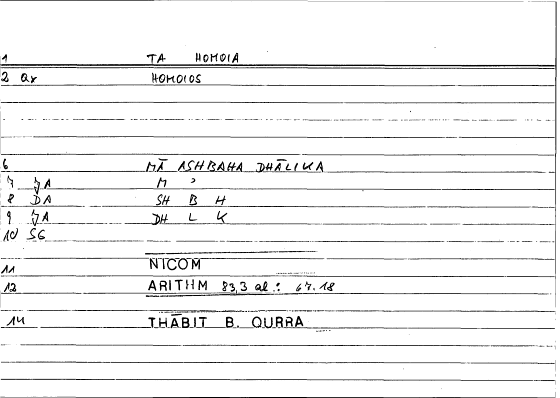 1 TA HOMOIA
2 ar HOMOIOS
6 MĀ ASHBAHA DHĀLIKA
7 JA M ʾ
8 DA SH B H
9 JA DH L K
10 SG
11 NICOM
12 ARITHM 83,3 al.: 67.18
14 THĀBIT B. QURRA